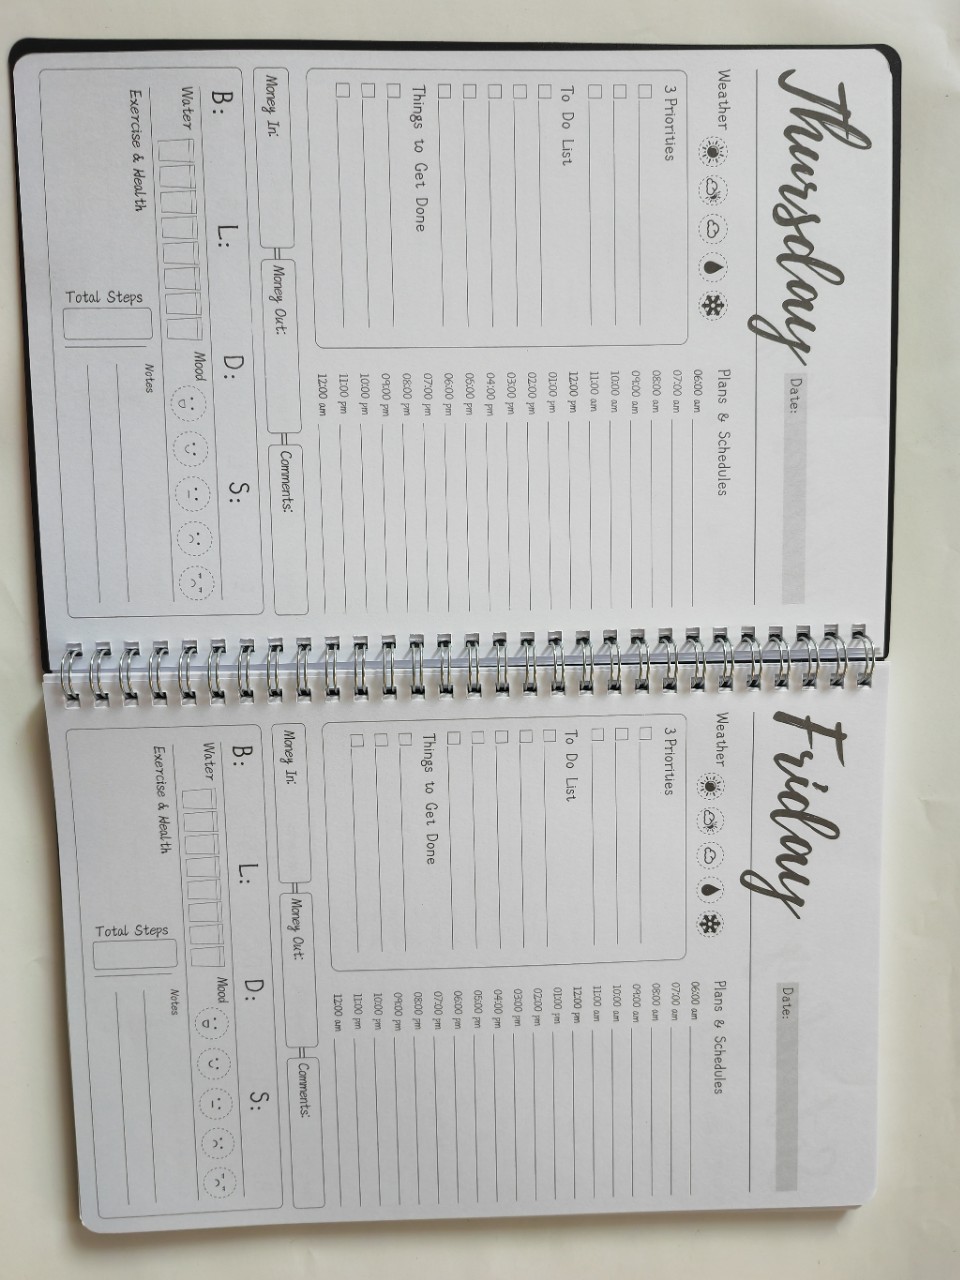 Thursday
Date:
Weather
Plans & Schedules
3 Priorities
To Do List
Things to Get Done
06:00 am
07:00 am
08:00 am
09:00 am
10:00 am
11:00 am
12:00 pm
01:00 pm
02:00 pm
03:00 pm
04:00 pm
05:00 pm
06:00 pm
07:00 pm
08:00 pm
09:00 pm
10:00 pm
11:00 pm
12:00 am
Money In:
Money Out:
Comments:
B:
L:
D:
S:
Water
Mood
Exercise & Health
Total Steps
Notes
Friday
Date:
Weather
Plans & Schedules
3 Priorities
To Do List
Things to Get Done
06:00 am
07:00 am
08:00 am
09:00 am
10:00 am
11:00 am
12:00 pm
01:00 pm
02:00 pm
03:00 pm
04:00 pm
05:00 pm
06:00 pm
07:00 pm
08:00 pm
09:00 pm
10:00 pm
11:00 pm
12:00 am
Money In:
Money Out:
Comments:
B:
L:
D:
S:
Water
Mood
Exercise & Health
Total Steps
Notes